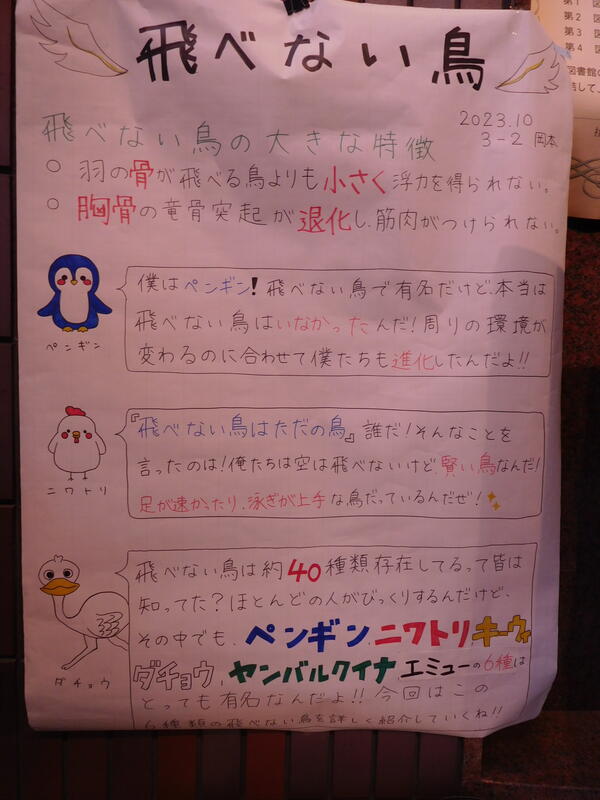 飛べない鳥
2023.10
3-2 岡本
飛べない鳥の大きな特徴
○ 羽の骨が飛べる鳥よりも小さく浮力を得られない。
○ 胸骨の竜骨突起が退化し、筋肉がつけられない。
僕はペンギン!飛べない鳥で有名だけど、本当は
飛べない鳥はいなかったんだ!周りの環境が
変わるのに合わせて僕たちも進化したんだよ!!
ペンギン
『飛べない鳥はただの鳥』誰だ!そんなことを
言ったのは!俺たちは空は飛べないけど、賢い鳥なんだ!
足が速かったり、泳ぎが上手な鳥だっているんだぜ!
ニワトリ
飛べない鳥は約40種類存在してるって皆は
知ってた?ほとんどの人がびっくりするんだけど、
その中でも、ペンギン,ニワトリ,キーウィ
ダチョウ,ヤンバルクイナ エミューの6種は
とっても有名なんだよ!!今回はこの
6種類の飛べない鳥を詳しく紹介していくね!!
ダチョウ
第1 図
第2 図
第3 図
第4 図
図書館の